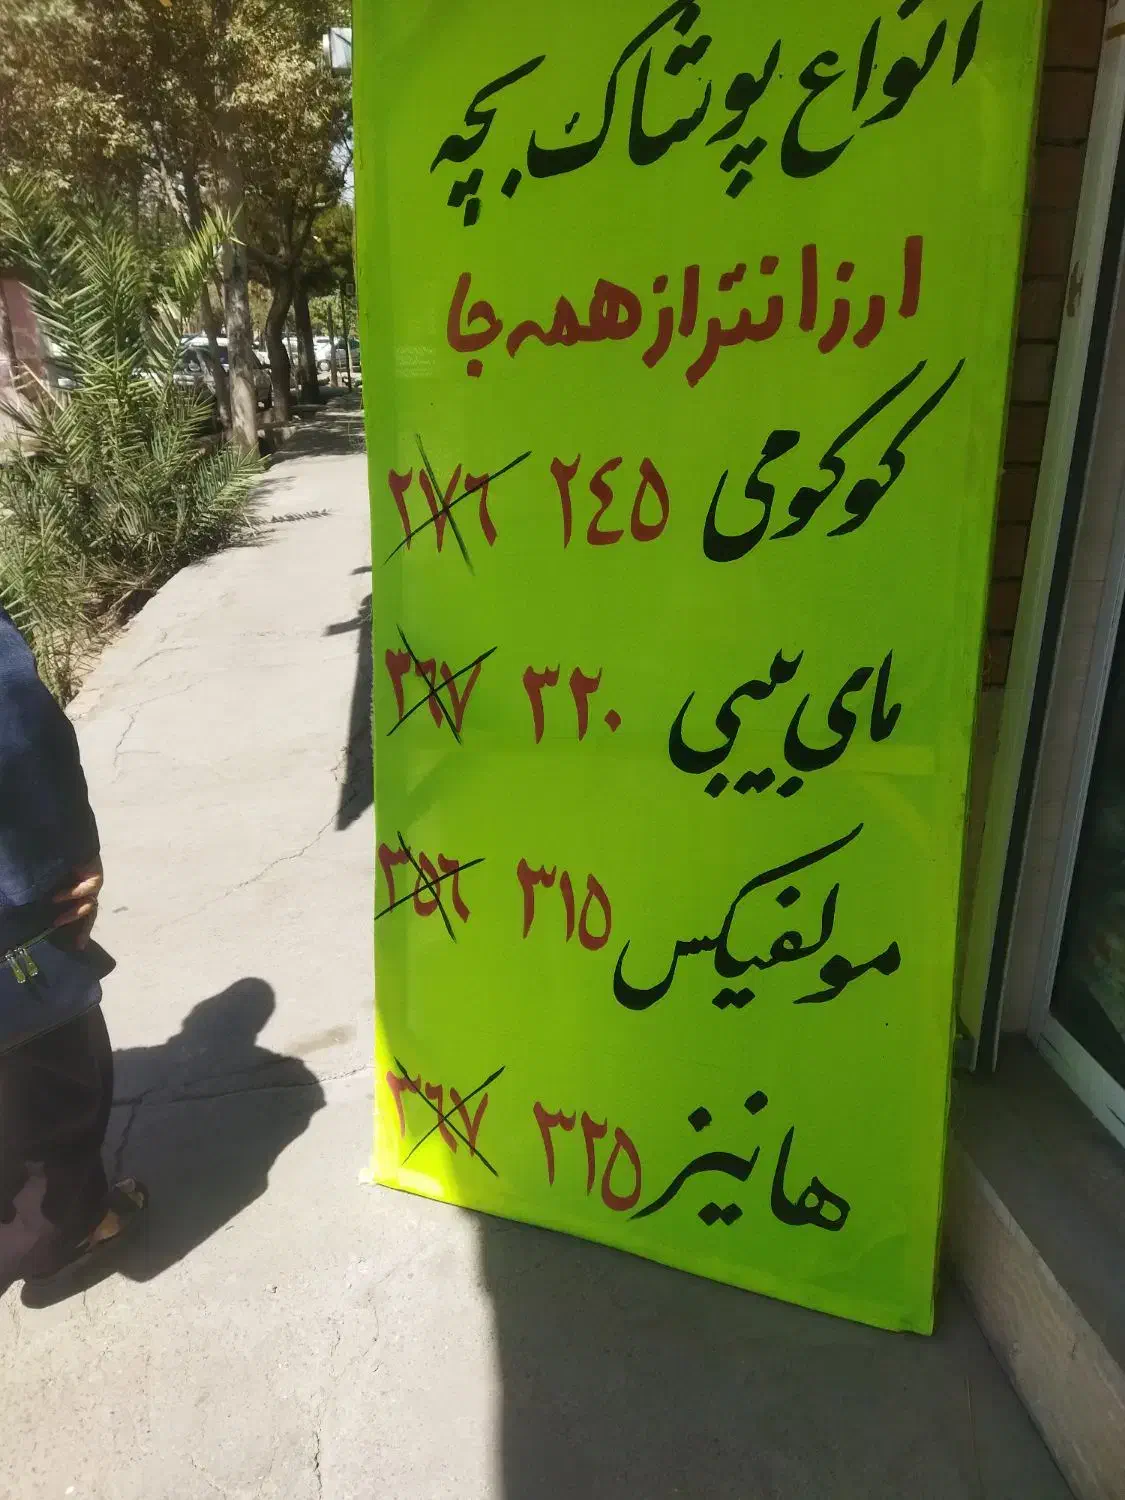 انواع پوشاک بچه
ارزانتر از همه جا
کوکومی ۲٤۵ ۲۷٦
مای بیبی ۳۲۰ ۳٦۷
مولفیکس ۳۱۵ ۳۵٦
هانیز ۳۲۵ ۳٦۷